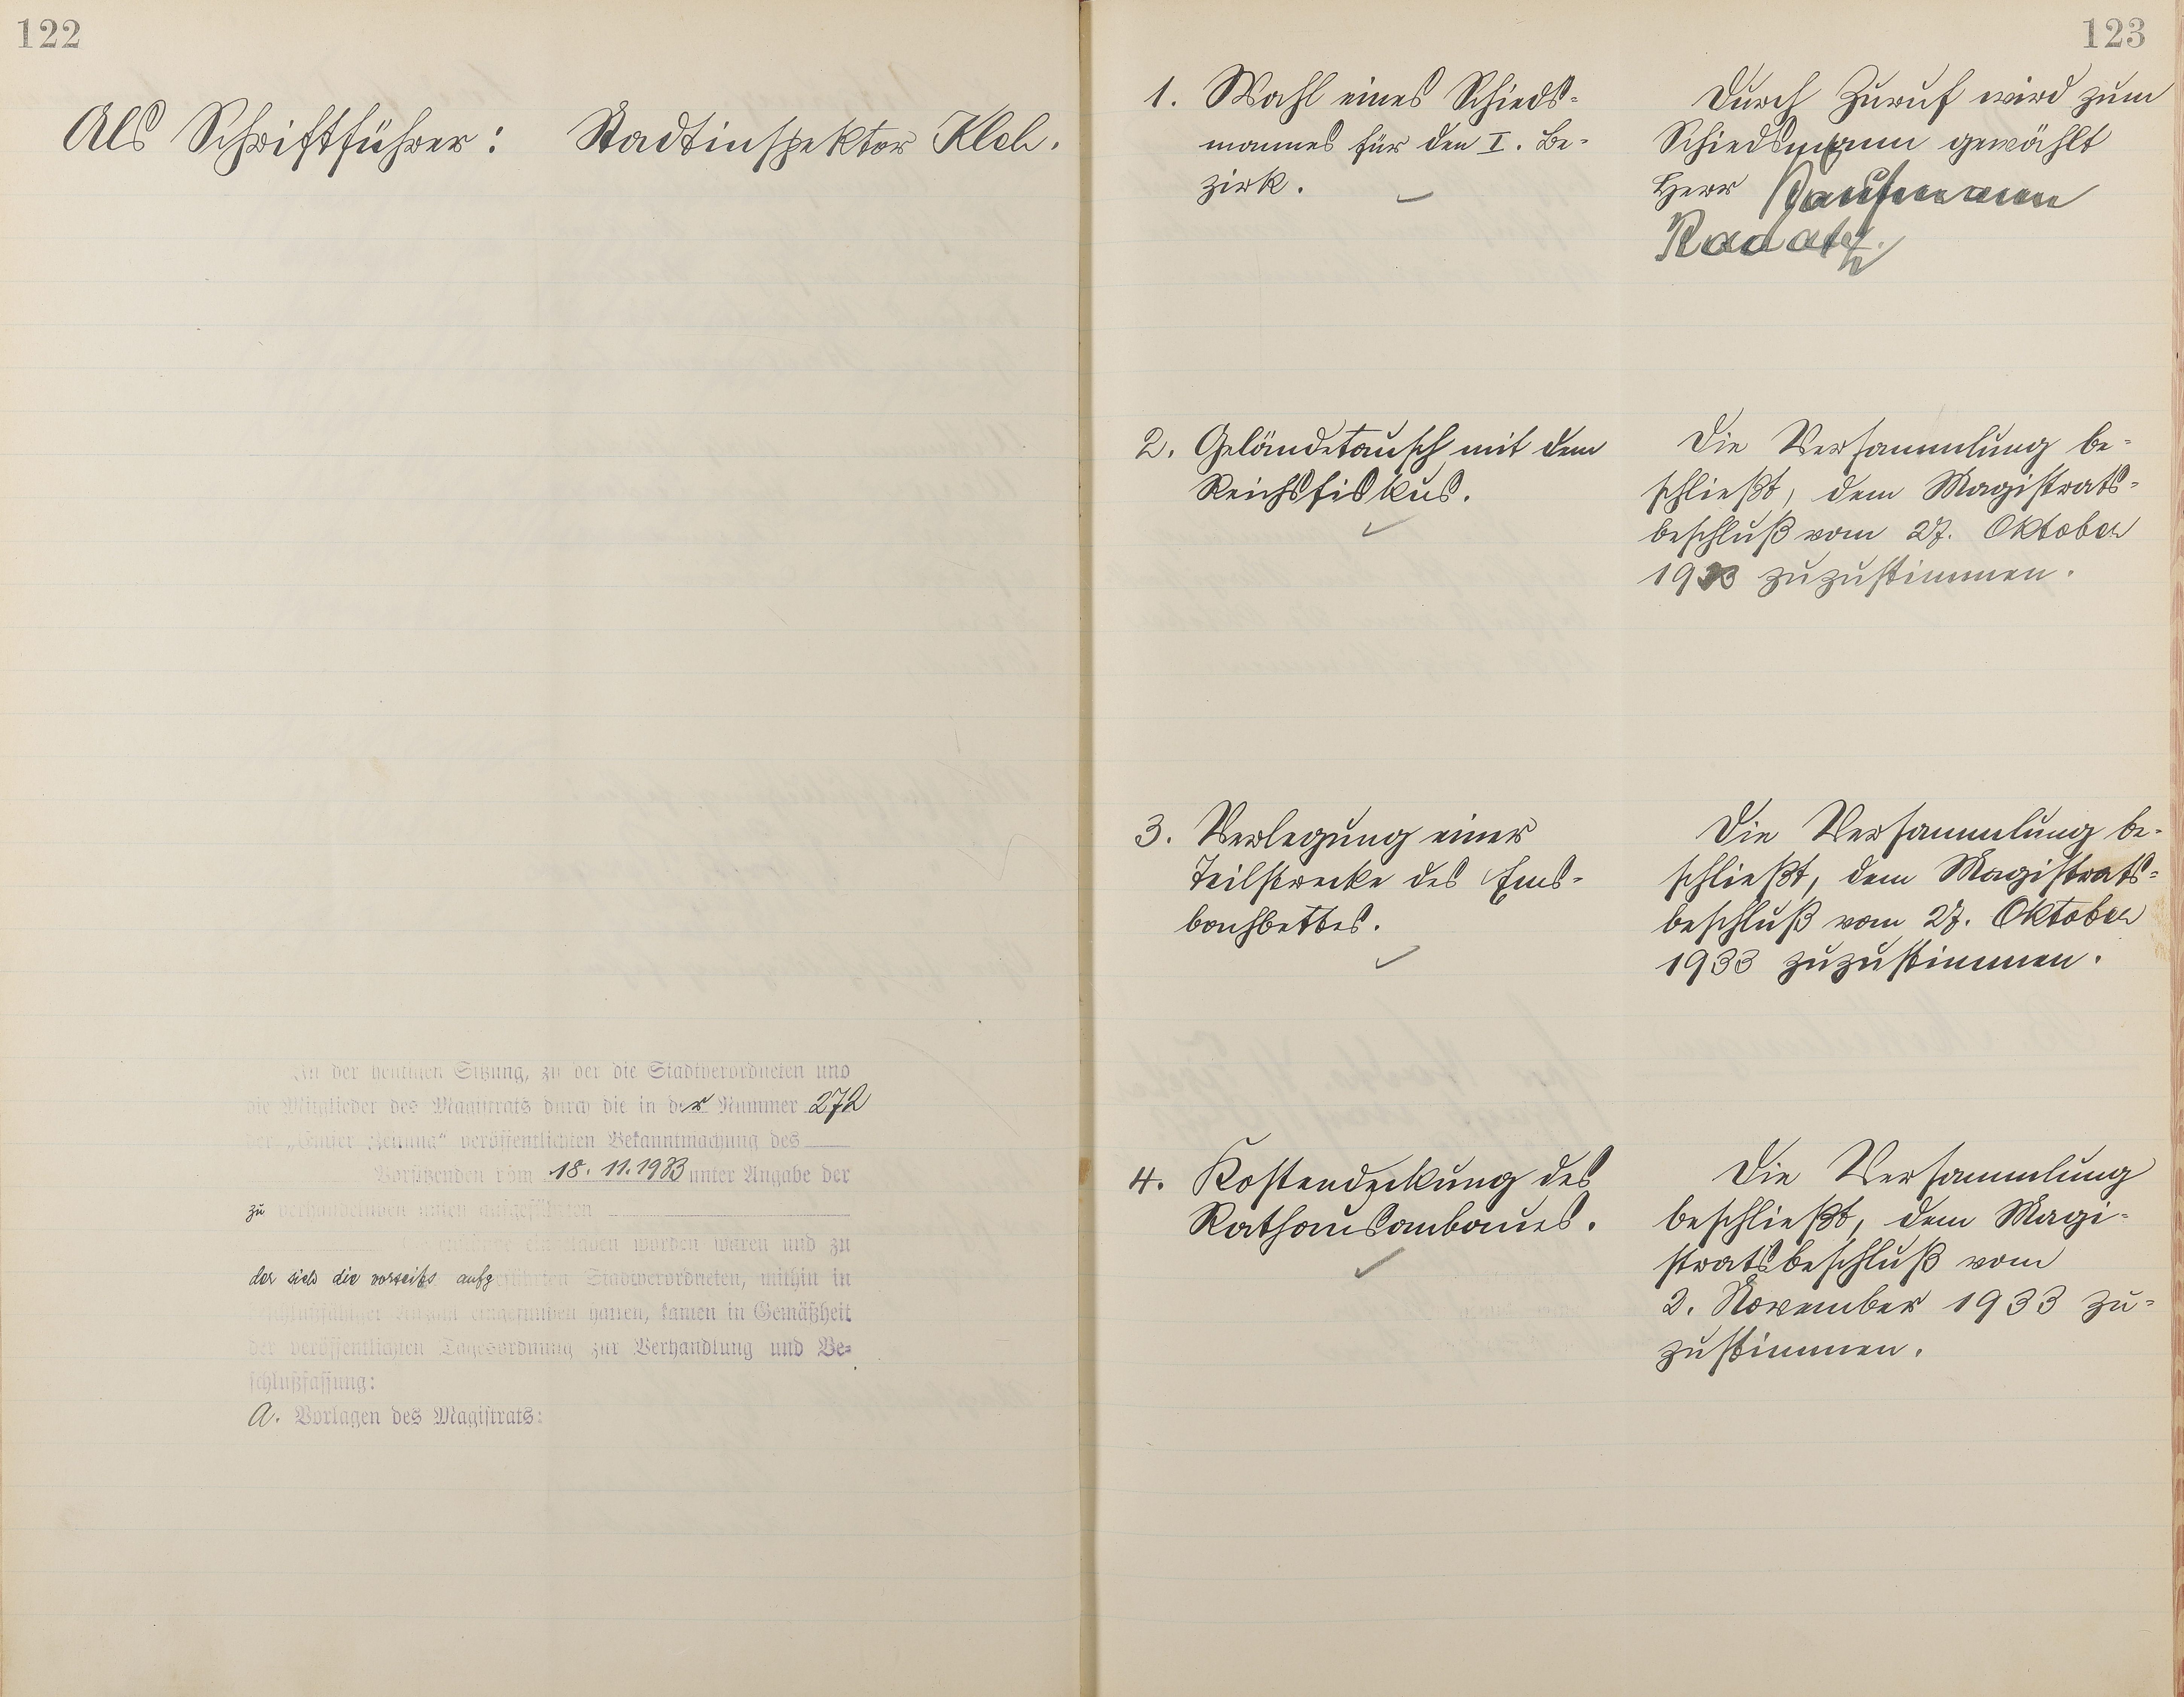 122
Als Schriftführer: Stadtinspektor Kleh.
In der heutigen Sitzung, zu der die Stadtverordneten und
die Mitglieder des Magistrats durch die in der Nummer 272
der „Emser Zeitung“ veröffentlichten Bekanntmachung des
Vorsitzenden vom 18. 11. 1933 unter Angabe der
zu verhandelnden unten aufgeführten
eingeladen worden waren und zu
der sich die vorseits aufgeführten Stadtverordneten, mithin in
beschlußfähiger Anzahl eingefunden hatten, kamen in Gemäßheit
der veröffentlichten Tagesordnung zur Verhandlung und Be-
schlußfassung:
A. Vorlagen des Magistrats:
123
1. Wahl eines Schieds-
mannes für den I. Be-
zirk.
Durch Zuruf wird zum
Schiedsmann gewählt
Herr Kaufmann
Radatz.
2. Geländetausch mit dem
Reichsfiskus.
Die Versammlung be-
schließt, dem Magistrats-
beschluß vom 27. Oktober
1933 zuzustimmen.
3. Verlegung einer
Teilstrecke des Ems-
bachbettes.
Die Versammlung be-
schließt, dem Magistrats-
beschluß vom 27. Oktober
1933 zuzustimmen.
4. Kostendeckung des
Rathausanbaues.
Die Versammlung
beschließt, dem Magi-
stratsbeschluß vom
2. November 1933 zu-
zustimmen.